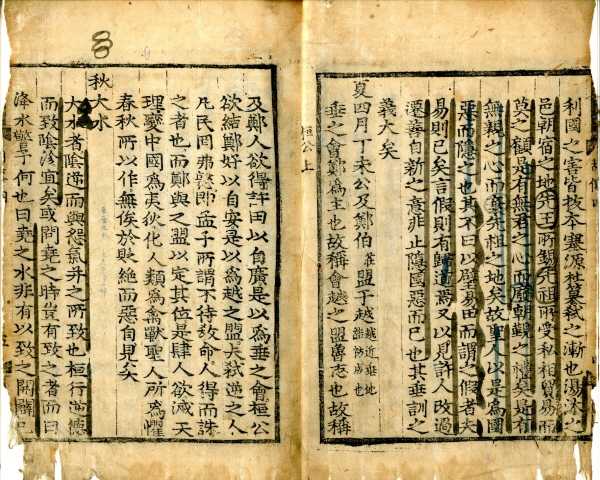 利國之害皆拔本塞源杜簒弑之漸也湯沐之
邑朝宿之地先王所錫先祖所受私相貿易而
莫之顧是有無君之心而廢朝覲之禮矣是有
無親之心而棄先祖之地矣故聖人以是爲國
惡而隱之也其不曰以璧易田而謂之假者夫
易則已矣言假則有歸道焉又以見許人改過
遷善自新之意非止隱國惡而已也其垂訓之
義大矣
夏四月丁未公及鄭伯莊盟于越越近垂地
垂之會鄭爲主也故稱會越之盟魯志也故稱
桓公上
及鄭人欲得許田以自廣是以爲垂之會桓公
欲結鄭好以自安是以爲越之盟夫弑逆之人
凡民罔弗憝即孟子所謂不待敎命人得而誅
之者也而鄭與之盟以定其位是肆人欲滅天
理變中國爲夷狄化人類爲禽獸聖人所爲懼
春秋所以作無俟於貶絶而惡自見矣
秋大水
大水者陰逆而與怨氣并之所致也桓行逆德
而致陰沴宜矣或問堯之時豈有致之者而曰
洚水警予何也曰堯之水非有以致之開闢已